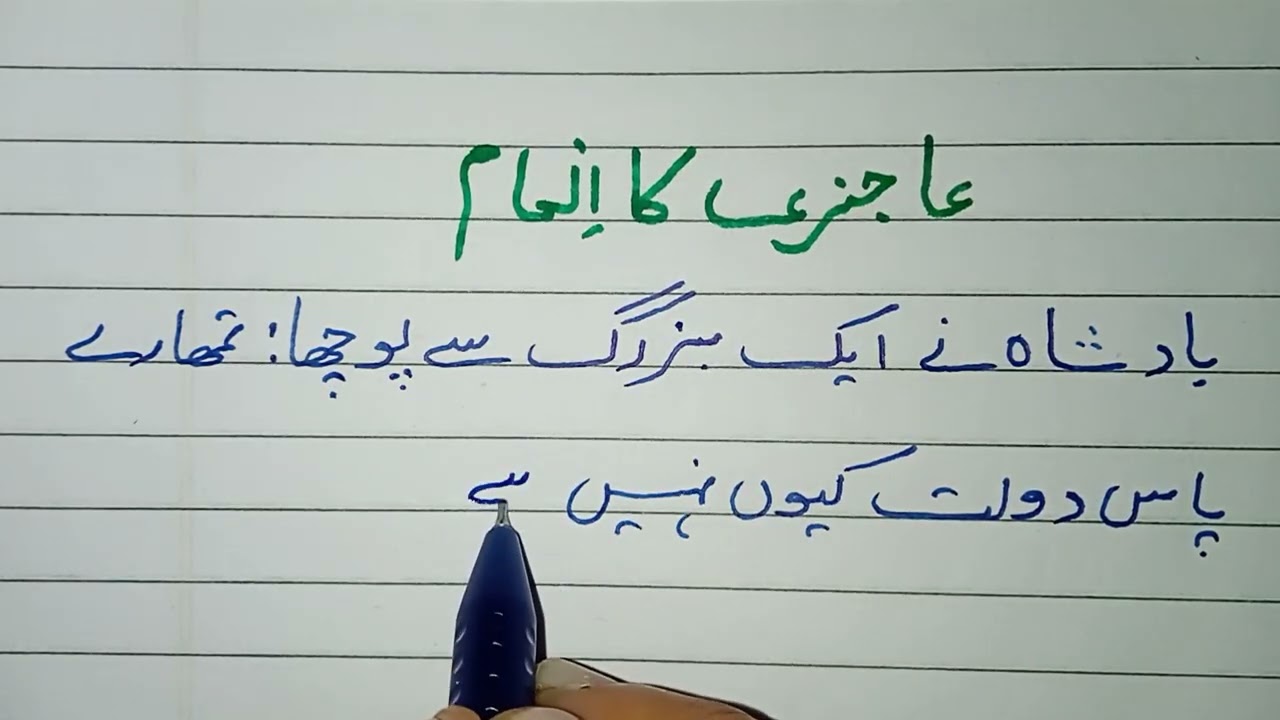 عاجزی کا اِنعام
بادشاہ نے ایک بزرگ سے پوچھا: تمھارے
پاس دولت کیوں نہیں ہے